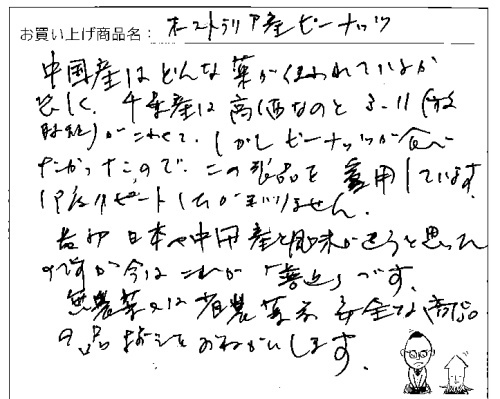 お買い上げ商品名： オーストラリア産ピーナッツ
中国産はどんな薬が使われているか
恐しく、千葉産は高価なのと3.11(放
射能)がこわくて、しかしピーナッツが食べ
たかったので、この製品を愛用しています。
リピートしたが
当初日本や中国産と風味が違うと思った
のですが今はこれが「普通」です。
無農薬又は省農薬等安全な商品
の品揃えをおねがいします。